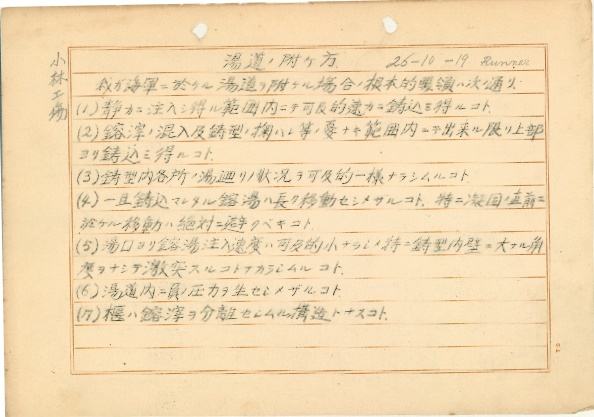 小林工場
湯道ノ附ケ方 26-10-19 Runner
我ガ海軍ニ於ケル湯道ヲ附ケル場合ノ根本的要領ハ次ノ通リ.
(1)静カニ注入シ得ル範囲内ニテ可及的速カニ鋳込ミ得ルコト.
(2)鎔滓ノ混入及鋳型ノ掬ハレ等ノ憂ナキ範囲内ニテ出来ル限リ上部
ヨリ鋳込ミ得ルコト.
(3)鋳型内各所ノ湯廻リノ状況ヲ可及的一様ナラシムルコト.
(4)一旦鋳込マレタル鎔湯ハ長ク移動セシメザルコト.特ニ凝固ノ直前ニ
於ケル移動ハ絶対ニ避クベキコト.
(5)湯口ヨリ鎔湯注入速度ハ可及的小ナラシメ特ニ鋳型内壁ニ大ナル角
度ヲナシテ激突スルコトナカラシムルコト.
(6)湯道内ニ負ノ圧力ヲ生セシメザルコト.
(7)堰ハ鎔滓ヲ分離セシムル構造トナスコト.